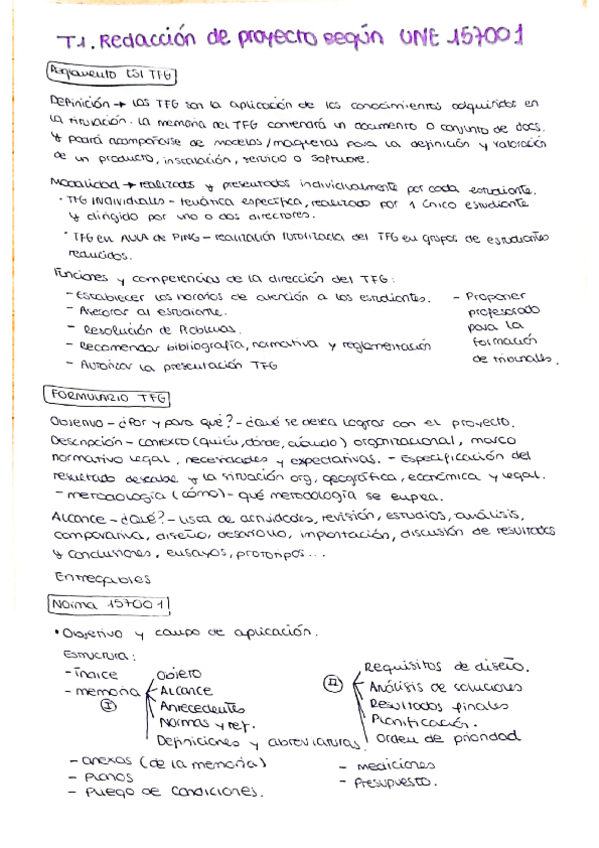 T.1. Redacción de proyecto según UNE 157001
Reglamento ESI TFG
Definición → Los TFG son la aplicación de los conocimientos adquiridos en
la titulación. La memoria del TFG contendrá un documento o conjunto de docs.
y podrá acompañarse de modelos/maquetas para la definición y valoración
de un producto, instalación, servicio o software.
Modalidad → realizados y presentados individualmente por cada estudiante.
· TFG INDIVIDUALES - temática específica, realizado por 1 único estudiante
y dirigido por uno o dos directores.
· TFG en AULA DE PING - realización tutorizada del TFG en grupos de estudiantes
reducidos.
Funciones y competencias de la dirección del TFG:
- Establecer los horarios de atención a los estudiantes.
- Asesorar al estudiante.
- Resolución de Problemas.
- Recomendar bibliografía, normativa y reglamentación
- Autorizar la presentación TFG
- Proponer
profesorado
para la
formación
de tribunales.
FORMULARIO TFG
Objetivo - ¿Por y para qué? - ¿Qué se desea lograr con el proyecto.
Descripción - contexto (quién, dónde, cuándo) organizacional, marco
normativo legal, necesidades y expectativas. - Especificación del
resultado descube y la situación org, geográfica, económica y legal.
- metodología (cómo) - qué metodología se emplea.
Alcance - ¿Qué? - lista de actividades, revisión, estudios, análisis,
comparativa, diseño, desarrollo, implantación, discusión de resultados
y conclusiones, ensayos, prototipos...
Entregables
Norma 157001
· Objetivo y campo de aplicación.
Estructura:
- índice
- memoria
I
Objeto
Alcance
Antecedentes
Normas y ref.
Definiciones y abreviaturas
II
Requisitos de diseño.
Análisis de soluciones
Resultados finales
Planificación.
Orden de prioridad
- anexos (de la memoria)
- Planos
- Pliego de condiciones.
- mediciones
- Presupuesto.